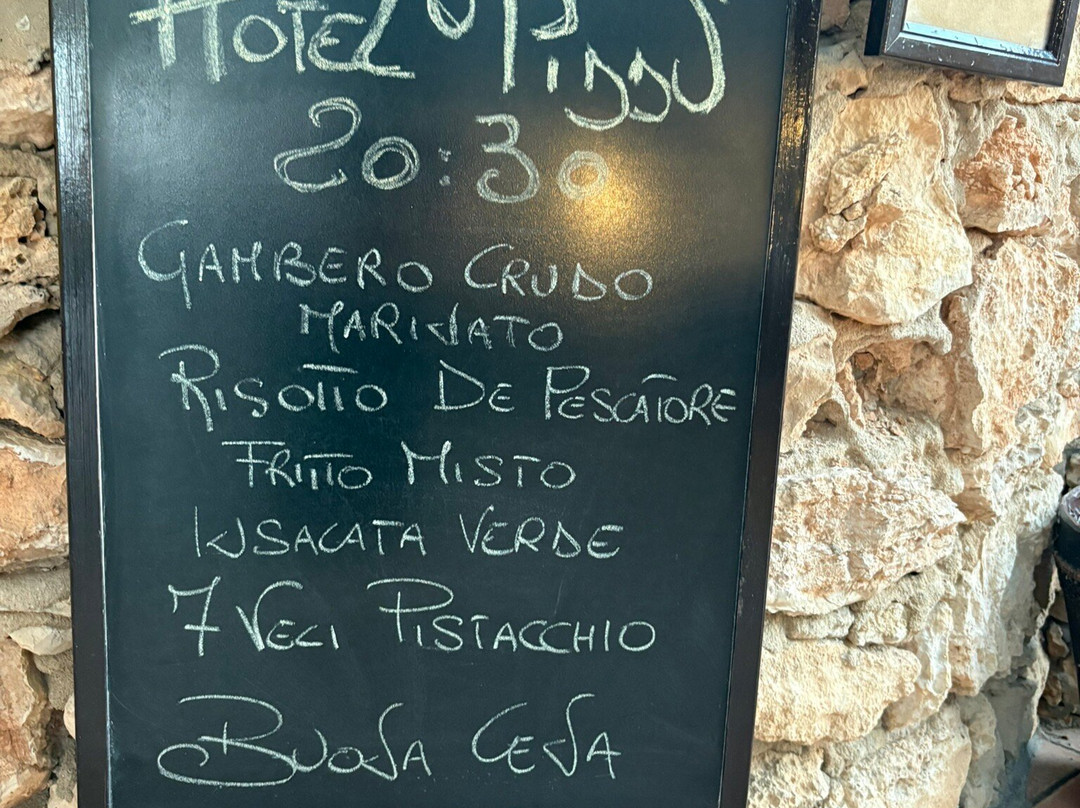 HOTEL
20:30
GAMBERO CRUDO
MARINATO
RISOTTO DE PESCATORE
FRITTO MISTO
INSALATA VERDE
7 VELI PISTACCHIO
BUONA CENA